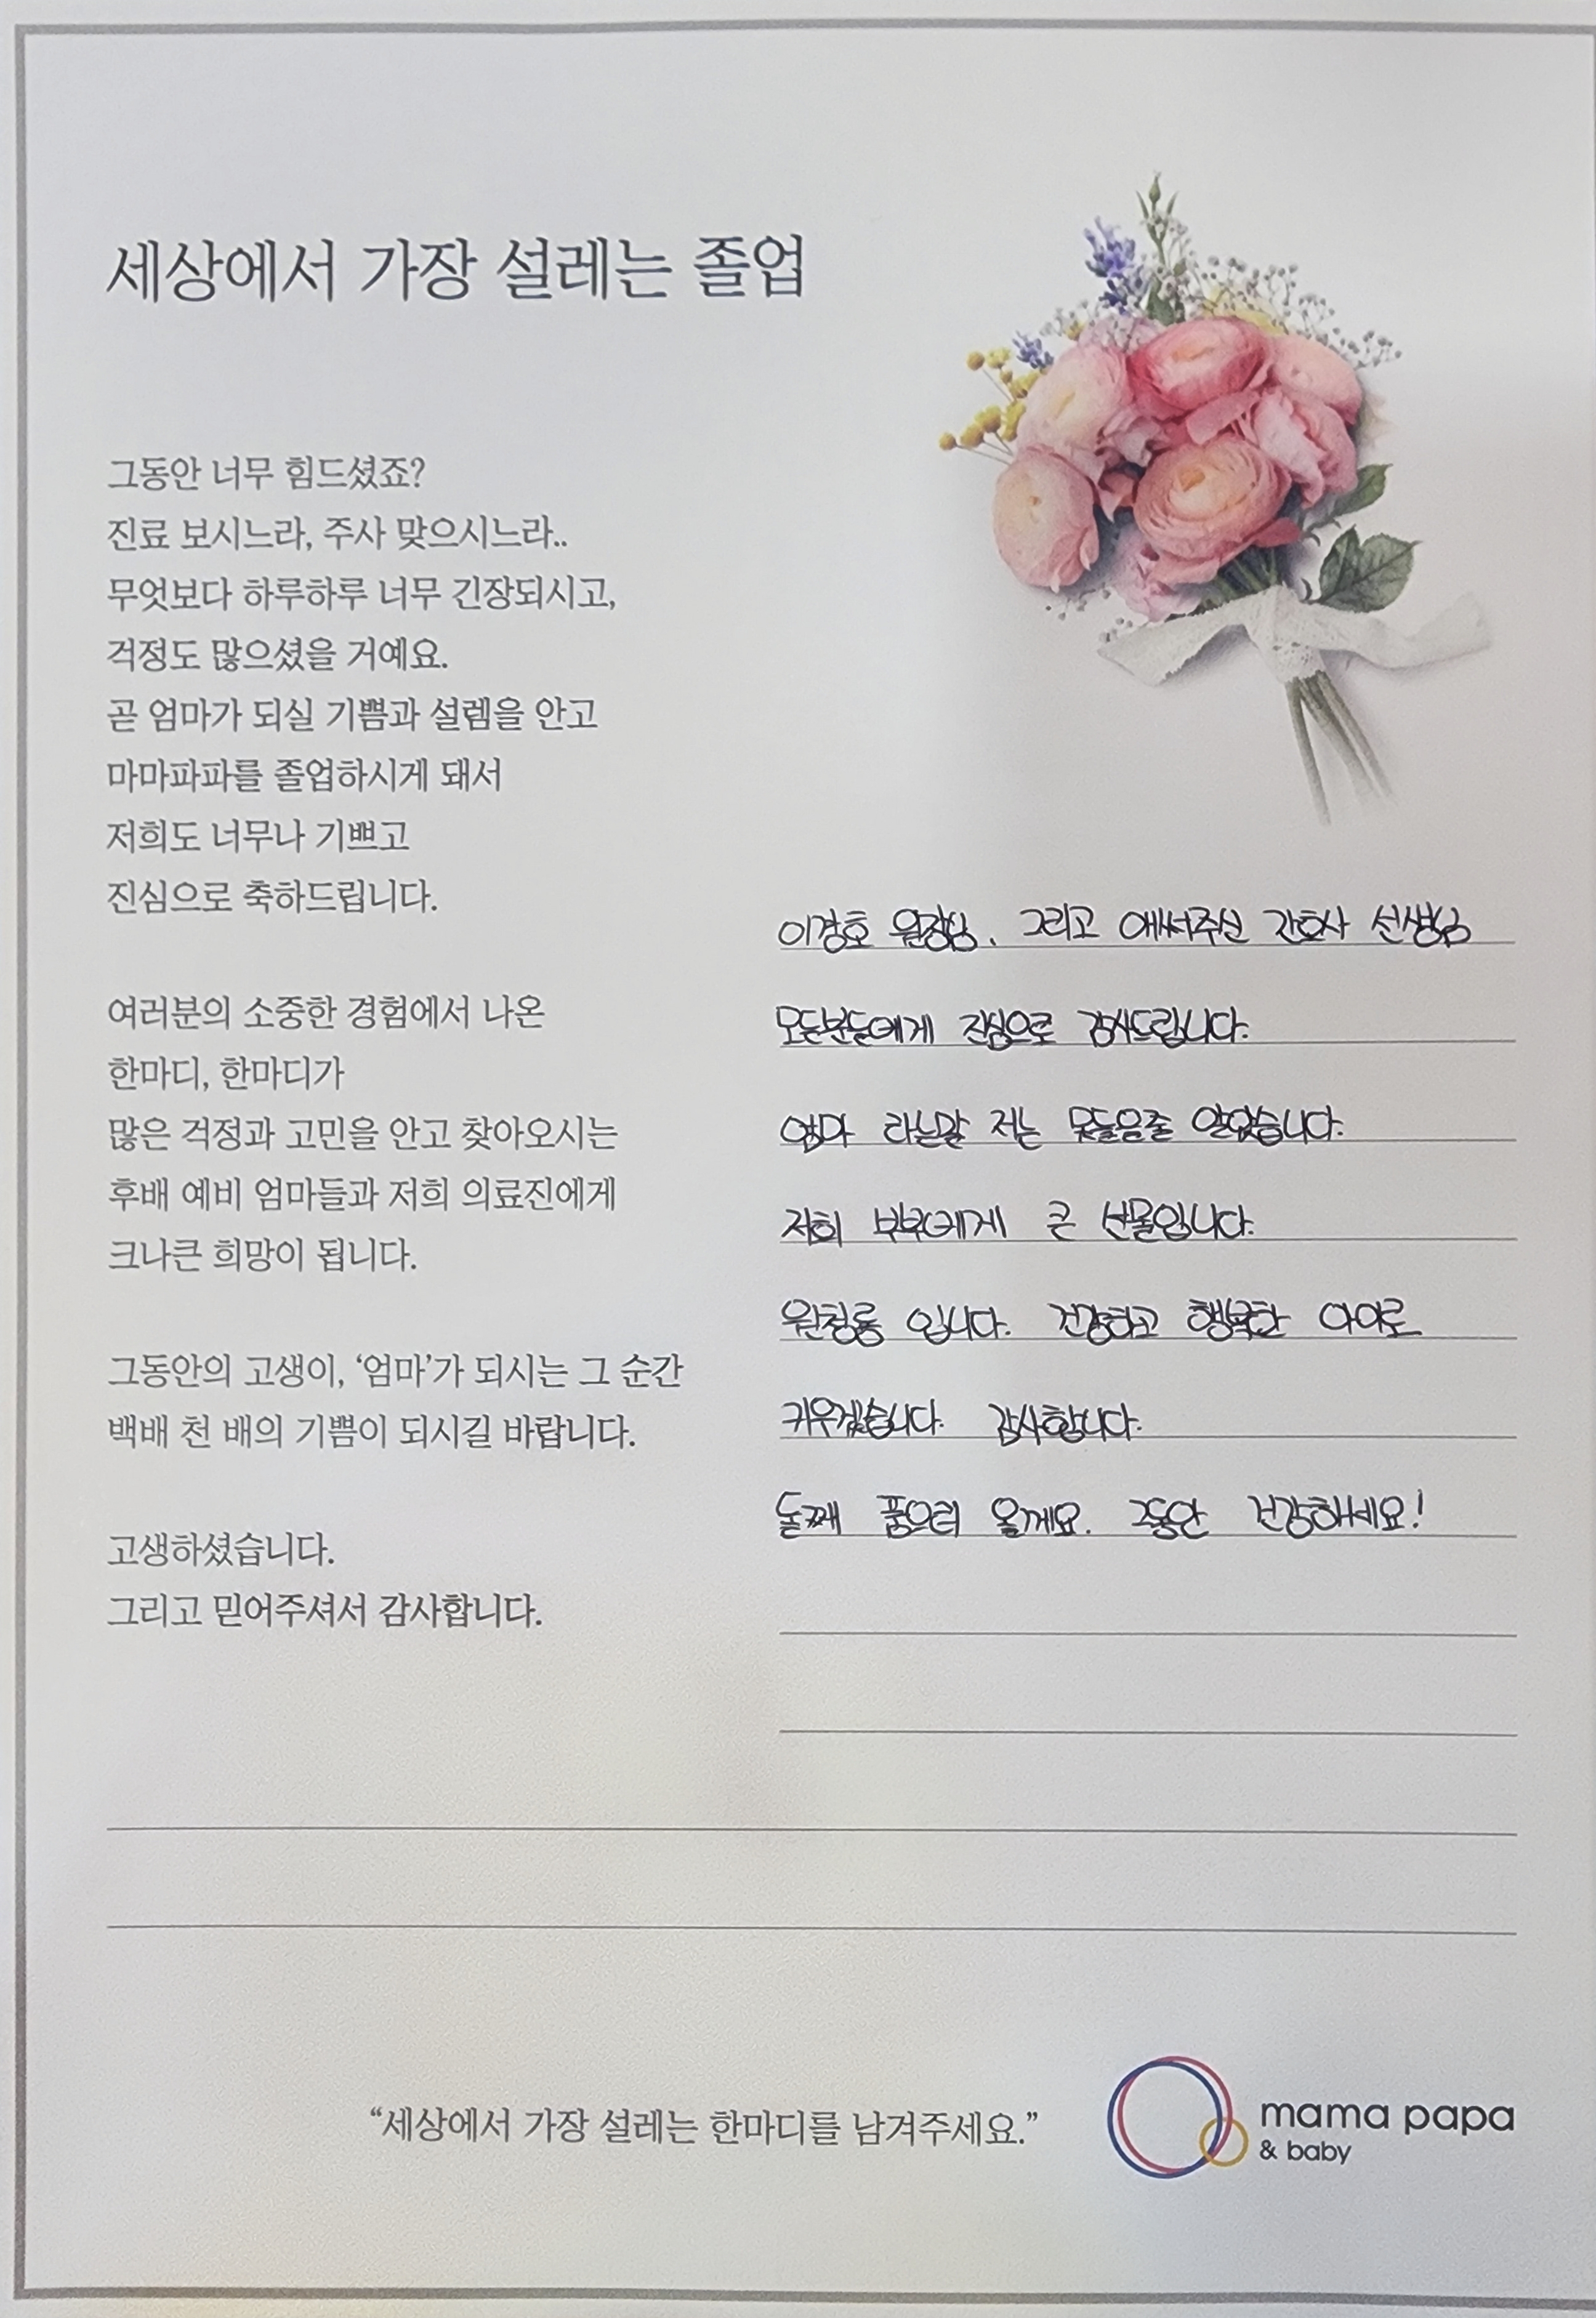 세상에서 가장 설레는 졸업
그동안 너무 힘드셨죠?
진료 보시느라, 주사 맞으시느라..
무엇보다 하루하루 너무 긴장되시고,
걱정도 많으셨을 거예요.
곧 엄마가 되실 기쁨과 설렘을 안고
마마파파를 졸업하시게 돼서
저희도 너무나 기쁘고
진심으로 축하드립니다.
여러분의 소중한 경험에서 나온
한마디, 한마디가
많은 걱정과 고민을 안고 찾아오시는
후배 예비 엄마들과 저희 의료진에게
크나큰 희망이 됩니다.
그동안의 고생이, ‘엄마’가 되시는 그 순간
백배 천 배의 기쁨이 되시길 바랍니다.
고생하셨습니다.
그리고 믿어주셔서 감사합니다.
이경호 원장님, 그리고 애써주신 간호사 선생님
모든분들에게 진심으로 감사드립니다.
엄마 라는말 저는 못들을줄 알았습니다.
저희 부부에게 큰 선물입니다.
입니다. 건강하고 행복한 아이로
키우겠습니다. 감사합니다.
둘째 품으러 올게요. 그동안 건강하세요!
“세상에서 가장 설레는 한마디를 남겨주세요.”
mama papa
& baby